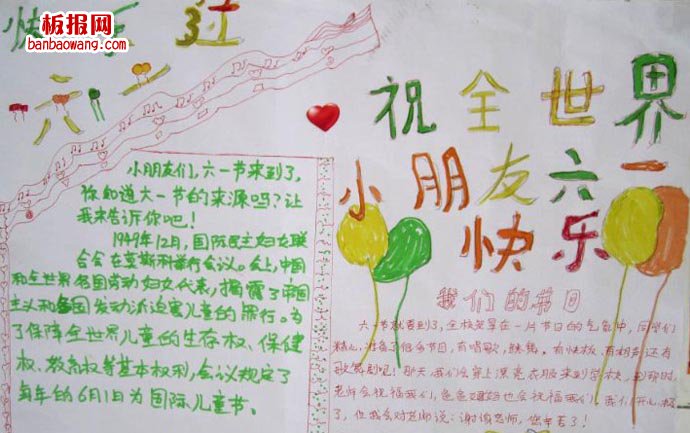 板报网
banbaowang.com
快乐过
六一
祝全世界
小朋友六一
快乐
小朋友们,六一节来到了,
你知道六一节的来源吗?让
我来告诉你吧!
1949年12月,国际民主妇女联
合会在莫斯科举行会议。会上,中国
和全世界各国劳动妇女代表,揭露了帝国
主义和各国反动派迫害儿童的罪行。为
了保障全世界儿童的生存权、保健
权、教育权等基本权利,会议规定了
每年的6月1日为国际儿童节。
我们的节日
六一节就要到了,全校笼罩在一片节日的气氛中,同学们
精心准备了很多节目,有唱歌,跳舞。有快板,有相声还有
歌舞剧呢!那天我们会穿上漂亮衣服来到学校,到那时,
老师会祝福我们,爸爸妈妈也会祝福我们。我们开心极
了,但我会对老师说:谢谢老师,您辛苦了!